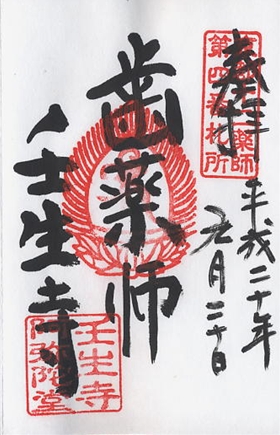 奉拝
平成二十年
月二十日
薬師
第四番札所
歯薬師
壬生寺
壬生寺
阿弥陀堂